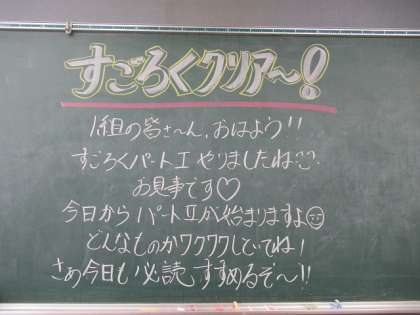 すごろくクリアー〜!
1組の皆さ〜ん、おはよう!!
すごろくパートⅠ やりましたね♡♡
お見事です♡
今日から パートⅡが始まりますよ☺
どんなものかワクワクしていてね!
さあ今日も 必読 すすめるぞ〜!!